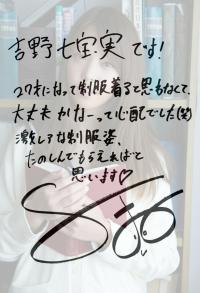 吉野七宝実です!
27才になって制服着ると思わなくて、
大丈夫かなーって心配でした(笑)
激レアな制服姿、
たのしんでもらえればと
思います♡